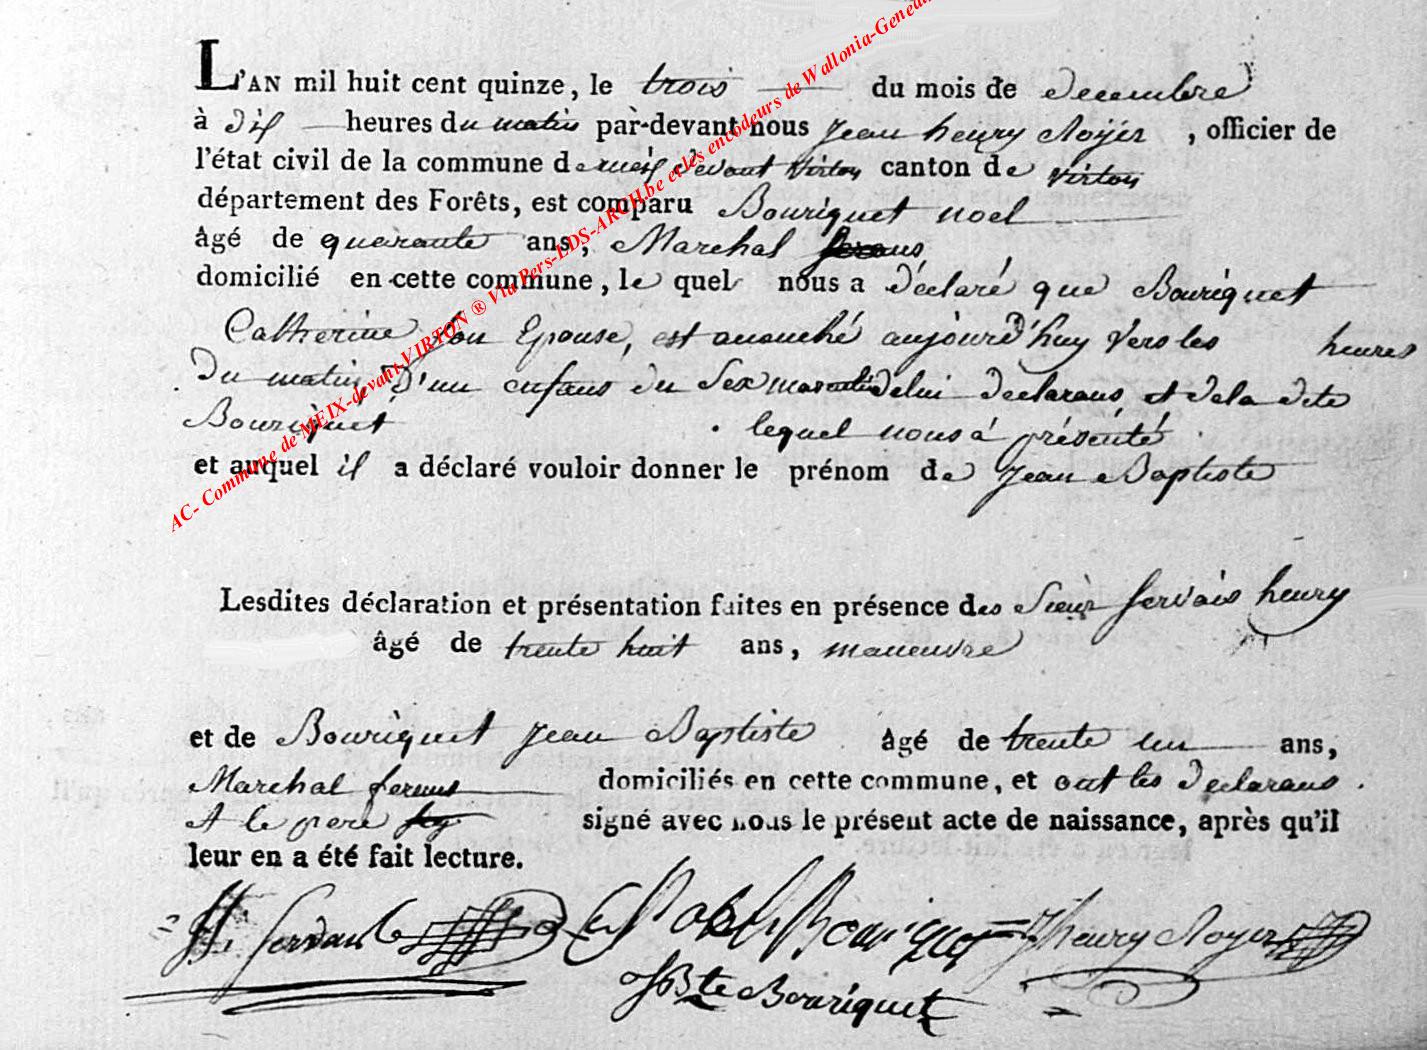 L'AN mil huit cent quinze, le trois du mois de decembre
à dix heures du matin par-devant nous jean henry Noÿer , officier de
l'état civil de la commune de meix devant virton canton de virton
département des Forêts, est comparu Bouriquet noel
âgé de quarante ans, Marchal
domicilié en cette commune, le quel nous a déclaré que Bouriquet
Catherine son Epouse, est anouché aujourd'huy vers les heures
du matin D'un enfans du Sex masculin delui declarans et dela dite
Bouriquet . lequel nous a présenté .
et auquel il a déclaré vouloir donner le prénom de jean Baptiste
Lesdites déclaration et présentation faites en présence des Sieur Servais henry
âgé de trente huit ans, maneuvre
et de Bouriquet jean Baptiste âgé de trente un ans,
Marchal ferans domiciliés en cette commune, et ont les declarans .
et le pere signé avec nous le présent acte de naissance, après qu'il
leur en a été fait lecture.
Bouriquet jhenry Noyer
JBte Bouriquet
AC- Commune de MEIX-devant-VIRTON ® Via Pers-EDS-ARCH.be et les encodeurs de Wallonia-Geneal